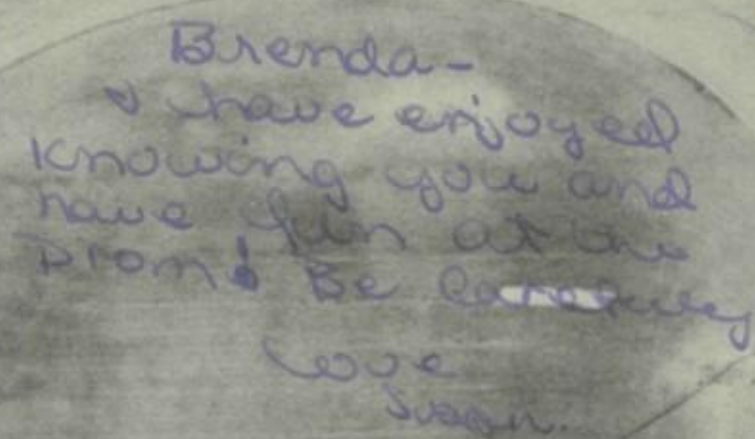 Brenda-
I have enjoyed
Knowing you and
have fun at the
prom! Be
Love
Susan.